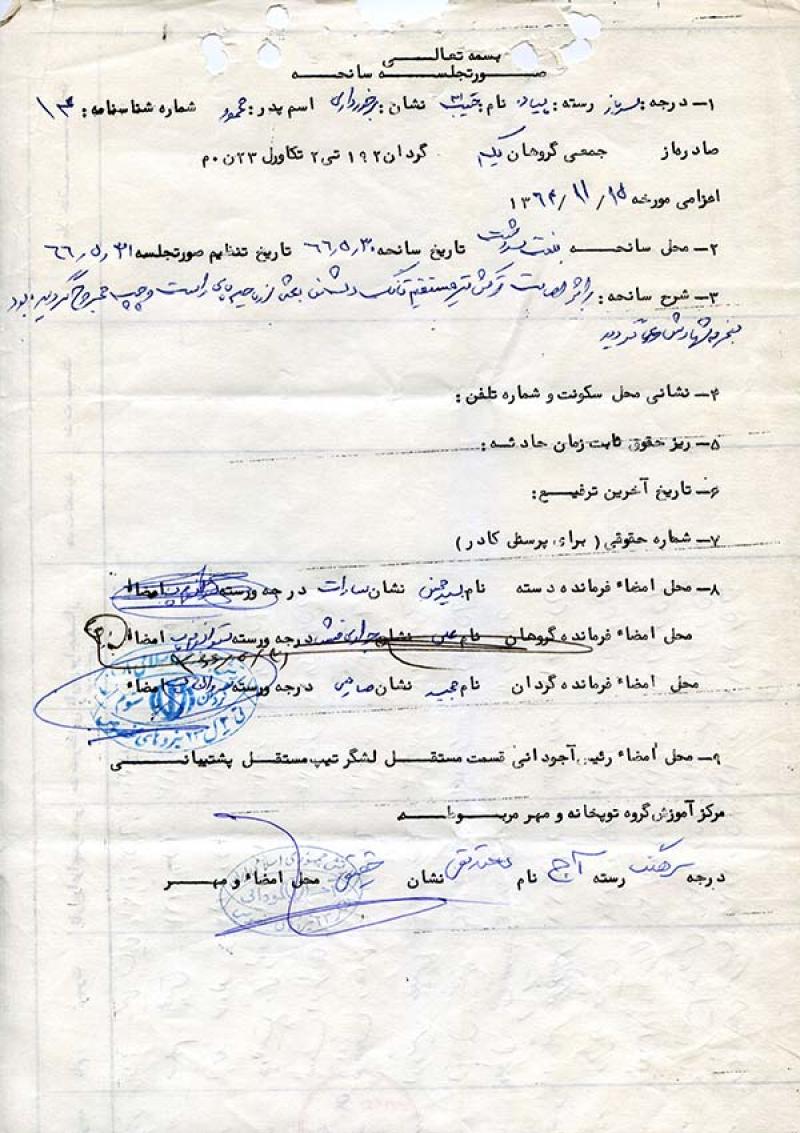 بسمه تعالی
صورتجلسه سانحه
۱ـ درجه: سرباز رسته: پیاده نام: حبیب اله نشان: برخورداری اسم پدر: محمود شماره شناسنامه: ۱۴
صادر از جمعی گروهان یکم گردان ۱۹۲ تی ۲ تکاور ل ۲۳ ن م
اعزامی مورخه ۱۳۶۴/۱۱/۱۵
۲ـ محل سانحه سردشت تاریخ سانحه ۶۶٫۵٫۳۰ تاریخ تنظیم صورتجلسه ۶۶٫۵٫۳۱
۳ـ شرح سانحه: بر اثر اصابت ترکش تیر مستقیم تانک دشمن از ناحیه پای راست و چپ مجروح گردیده بود
منجر به شهادت وی گردید
۴ـ نشانی محل سکونت و شماره تلفن:
۵ـ ریز حقوق ثابت زمان حادثه:
۶ـ تاریخ آخرین ترفیع:
۷ـ شماره حقوقی (برای پرسنل کادر)
۸ـ محل امضاء فرمانده دسته نام نشان سادات درجه ورسته امضاء
محل امضاء فرمانده گروهان نام علی نشان درجه ورسته امضاء
محل امضاء فرمانده گردان نام مجید نشان صارمی درجه ورسته امضاء
۹ـ محل امضاء رئیس آجودانی قسمت مستقل لشگر تیپ مستقل پشتیبانی
مرکز آموزش گروه توپخانه و مهر مربوطه
درجه سرهنگ رسته آج نام محمدتقی نشان حقیقی محل امضاء و مهر